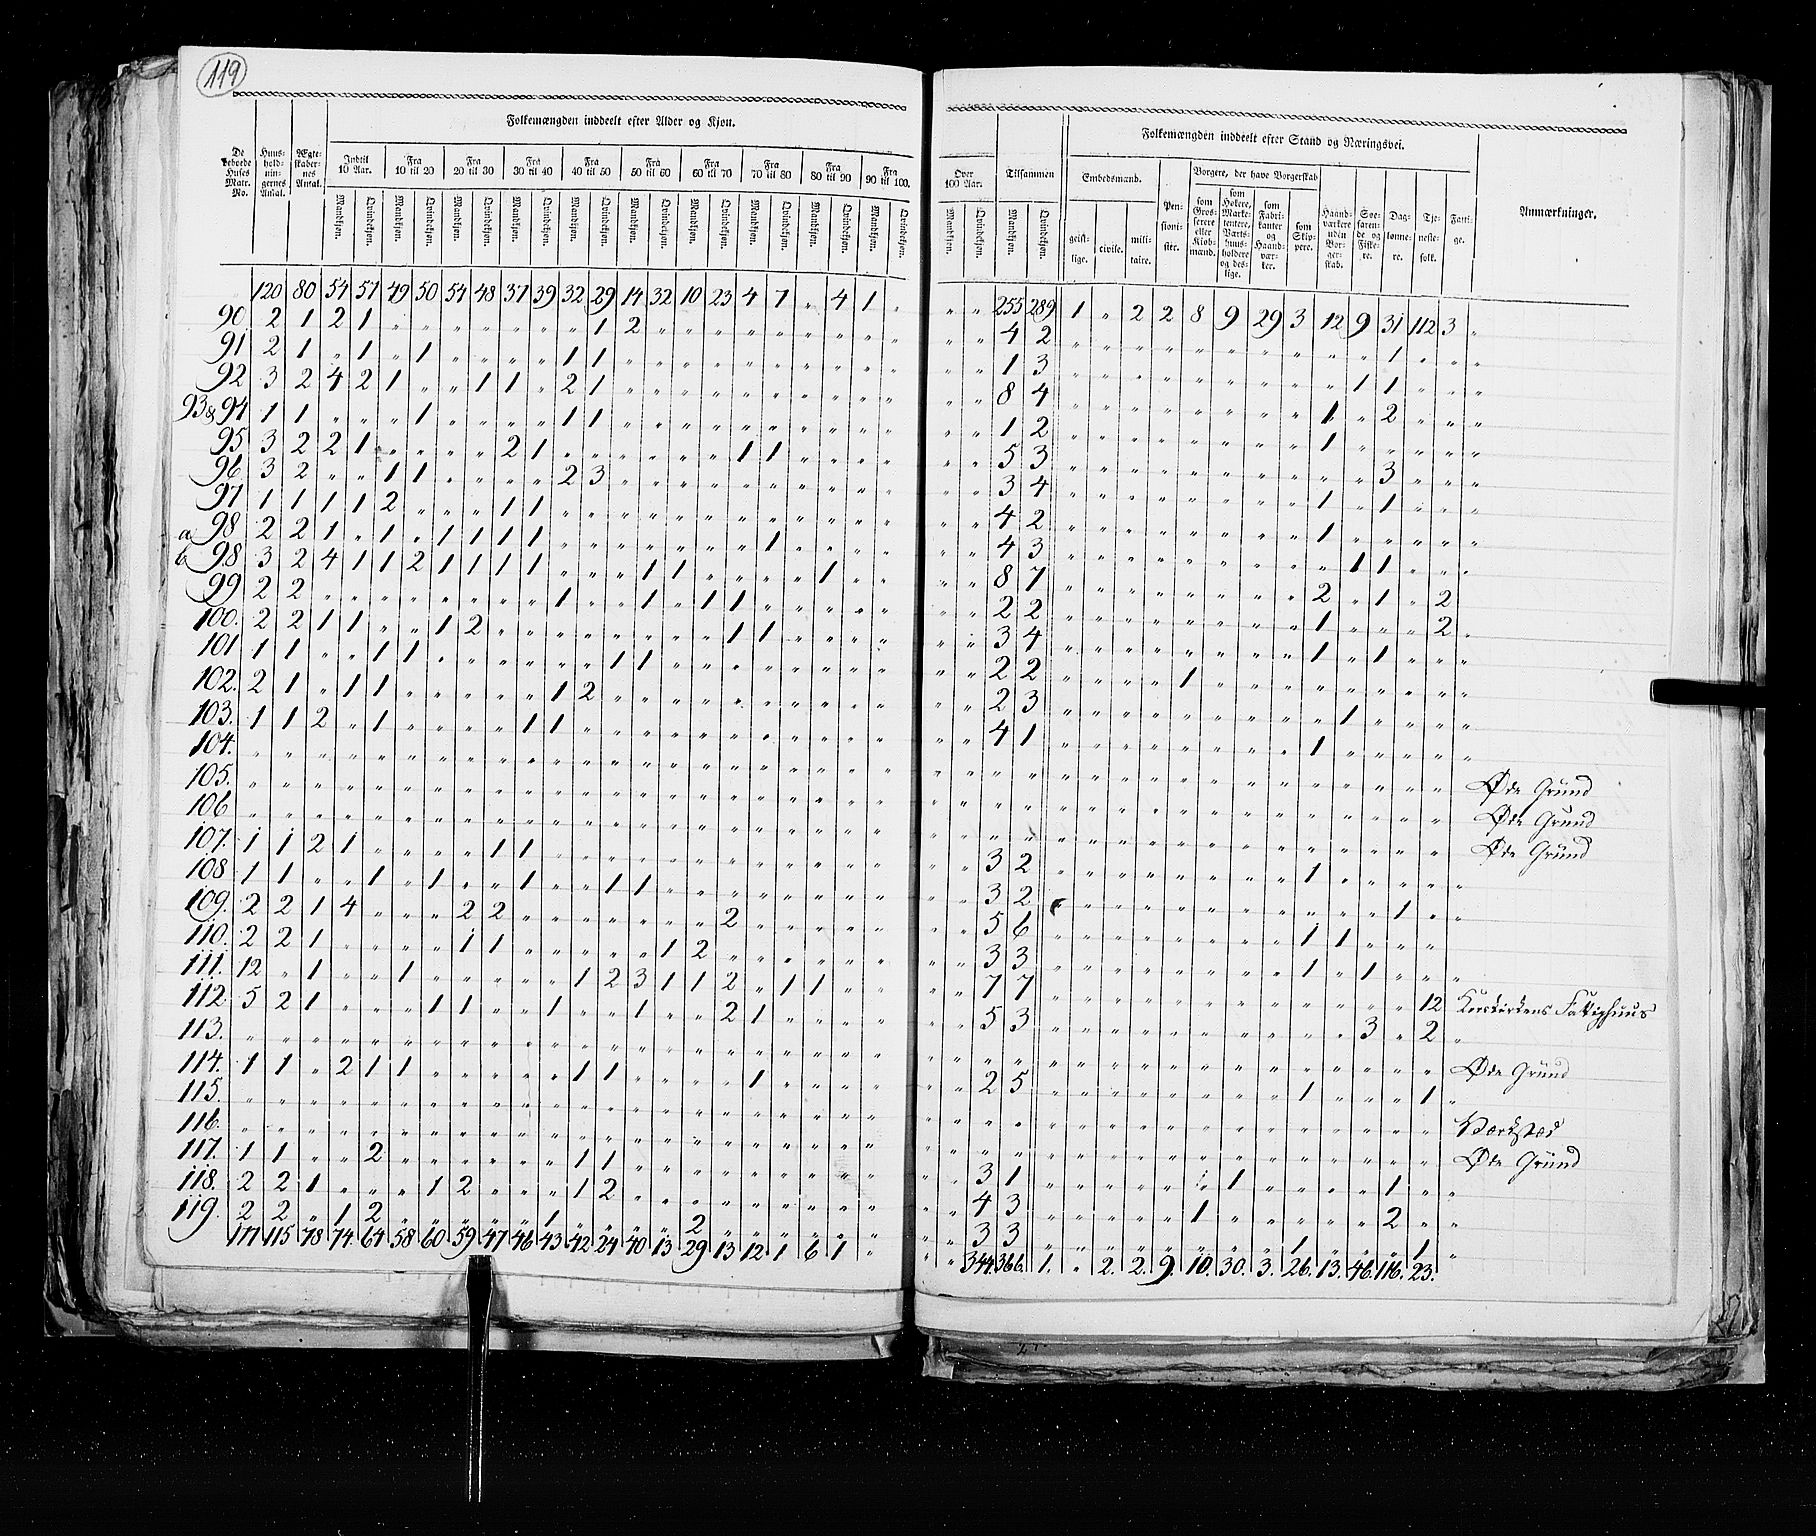 119
Folkemængden inddeelt efter Alder og Kjøn.
Folkemængden inddeelt efter Stand og Næringsvei.
De beboede Huses Matr. No. Huusholdningernes Antal. Ægteskabernes Antal. Indtil 10 Aar. Fra 10 til 20 Fra 20 til 30 Fra 30 til 40 Fra 40 til 50 Fra 50 til 60 Fra 60 til 70 Fra 70 til 80 Fra 80 til 90 Fra 90 til 100. Over 100 Aar. Tilsammen
Embedsmænd. Pensionister. Borgere, der have Borgerskab Haandværkere uden Borgerskab. Søefarende og Fiskere. Daglønnere. Tjenestefolk. Fattige. Anmærkninger.
geistlige. civile. militaire. som Grosserere eller Kiøbmænd. som Høkere, Marketentere, Værtshuusholdere og deslige. som Fabrikanter og Haandværker. som Skippere.
Mandkjøn. Qvindekjøn. Mandkjøn. Qvindekjøn. Mandkjøn. Qvindekjøn. Mandkjøn. Qvindekjøn. Mandkjøn. Qvindekjøn. Mandkjøn. Qvindekjøn. Mandkjøn. Qvindekjøn. Mandkjøn. Qvindekjøn. Mandkjøn. Qvindekjøn. Mandkjøn. Qvindekjøn. Mandkjøn. Qvindekjøn. Mandkjøn. Qvindekjøn.
120 80 54 57 49 50 54 48 37 39 32 29 14 32 10 23 4 7 „ 4 1 „ „ „ 255 289 1 „ 2 2 8 9 29 3 12 9 31 112 3 „
90 2 1 2 1 „ „ „ „ „ „ „ 1 2 „ „ „ „ „ „ „ „ „ „ „ 4 2 „ „ „ „ „ „ „ „ „ „ 1 „ „ „
91 2 1 „ 1 „ 1 „ „ „ „ 1 1 „ „ „ „ „ „ „ „ „ „ „ „ 1 3 „ „ „ „ „ „ „ „ „ 1 1 „ „ „
92 3 2 4 2 1 „ „ 1 1 „ 2 1 „ „ „ „ „ „ „ „ „ „ „ „ 8 4 „ „ „ „ „ „ „ „ 1 „ 2 „ „ „
93 & 94 1 1 „ „ „ 1 „ „ „ „ 1 1 „ „ „ „ „ „ „ „ „ „ „ „ 1 2 „ „ „ „ „ „ „ „ 1 „ „ „ „ „
95 3 2 2 1 „ „ „ „ 2 1 „ „ „ „ „ „ 1 1 „ „ „ „ „ „ 5 3 „ „ „ „ „ „ „ „ „ „ 3 „ „ „
96 3 2 „ „ 1 1 „ „ „ „ 2 3 „ „ „ „ „ „ „ „ „ „ „ „ 3 4 „ „ „ „ „ „ „ „ 1 „ 1 „ „ „
97 1 1 1 1 2 „ „ „ 1 1 „ „ „ „ „ „ „ „ „ „ „ „ „ „ 4 2 „ „ „ „ „ „ „ „ 1 „ „ „ „ „
a 98 2 2 1 „ 1 „ 1 1 1 1 „ „ „ „ „ „ „ 1 „ „ „ „ „ „ 4 3 „ „ „ „ „ „ „ „ „ 1 1 „ „ „
b 98 3 2 4 1 1 2 1 1 1 1 „ „ „ 1 1 „ „ „ „ 1 „ „ „ „ 8 7 „ „ „ „ „ „ „ „ 2 „ 1 „ 2
99 2 2 „ „ „ „ „ „ „ „ 1 „ „ 1 „ 1 1 „ „ „ „ „ „ „ 2 2 „ „ „ „ „ „ „ „ 1 „ „ „ 2 „
100. 2 2 1 1 „ „ 1 2 „ „ „ „ „ „ „ „ 1 1 „ „ „ „ „ „ 3 4 „ „ „ „ „ „ „ „ 1 „ 1 „ „ „
101 1 1 „ „ 1 1 „ „ „ „ „ „ 1 1 „ „ „ „ „ „ „ „ „ „ 2 2 „ „ „ „ 1 „ „ „ „ „ „ „ „ „
102. 2 1 „ 1 1 „ „ „ „ „ 1 2 „ „ „ „ „ „ „ „ „ „ „ „ 2 3 „ „ „ „ „ „ „ „ „ 1 „ „ „ „
103. 1 1 2 „ 1 „ „ „ „ 1 1 „ „ „ „ „ „ „ „ „ „ „ „ „ 4 1 „ „ „ „ „ „ „ „ 1 „ „ „ „ „
104. „ „ „ „ „ „ „ „ „ „ „ „ „ „ „ „ „ „ „ „ „ „ „ „ „ „ „ „ „ „ „ „ „ „ „ „ „ „ „ Øde Grund
105. „ „ „ „ „ „ „ „ „ „ „ „ „ „ „ „ „ „ „ „ „ „ „ „ „ „ „ „ „ „ „ „ „ „ „ „ „ „ „ Øde Grund
106 „ „ „ „ „ „ „ „ „ „ „ „ „ „ „ „ „ „ „ „ „ „ „ „ „ „ „ „ „ „ „ „ „ „ „ „ „ „ „ Øde Grund
107. 1 1 2 1 „ „ „ „ 1 1 „ „ „ „ „ „ „ „ „ „ „ „ „ „ 3 2 „ „ „ „ „ „ „ „ 1 „ „ „ „ „
108 1 1 „ „ 1 „ 1 „ „ 1 „ „ 1 1 „ „ „ „ „ „ „ „ „ „ 3 2 „ „ „ „ „ „ „ „ „ „ „ 1 „ „
109. 2 2 1 4 „ „ „ 2 2 „ „ „ „ „ „ „ 2 „ „ „ „ „ „ „ 5 6 „ „ „ „ „ „ „ „ 1 1 „ „ „
110. 2 2 1 „ „ „ „ 1 1 „ „ „ „ „ 1 2 „ „ „ „ „ „ „ „ 3 3 „ „ „ „ „ „ „ „ 1 „ 1 „ „ „
111. 12 „ 1 „ „ 1 „ „ „ „ „ 1 2 3 1 1 2 „ 1 1 „ „ „ „ 7 7 „ „ „ „ „ „ „ „ „ „ „ „ 12 Korskirkens Fattighuus
112. 5 2 1 „ „ „ 1 1 „ „ 1 „ „ 1 „ „ 2 1 „ „ „ „ „ „ 5 3 „ „ „ „ „ „ „ „ „ „ 3 „ 2 „
113. „ „ „ „ „ „ „ „ „ „ „ „ „ „ „ „ „ „ „ „ „ „ „ „ „ „ „ „ „ „ „ „ „ „ „ „ „ „ „ Øde Grund
114. 1 1 „ 2 1 1 „ „ „ „ „ 1 1 „ „ „ „ 1 „ „ „ „ „ „ 2 5 „ „ „ „ „ „ „ „ 1 „ „ „ 1 „
115. „ „ „ „ „ „ „ „ „ „ „ „ „ „ „ „ „ „ „ „ „ „ „ „ „ „ „ „ „ „ „ „ „ „ „ „ „ „ „ Værksted
116. „ „ „ „ „ „ „ „ „ „ „ „ „ „ „ „ „ „ „ „ „ „ „ „ „ „ „ „ „ „ „ „ „ „ „ „ „ „ „ Øde Grund
117. 1 1 „ „ 2 „ „ „ „ „ „ 1 1 „ „ „ „ „ „ „ „ „ „ „ 3 1 „ „ „ „ „ „ 1 „ „ „ „ 1 „ „
118. 2 2 1 „ „ „ 1 2 „ „ „ 1 2 „ „ „ „ „ „ „ „ „ „ „ 4 3 „ „ „ „ „ 1 „ „ „ „ „ 2 „ „
119. 2 2 „ 1 2 „ „ „ „ „ 1 „ „ „ „ 2 „ „ „ „ „ „ „ „ 3 3 „ „ „ „ „ „ „ „ 1 „ „ „ 1 „
177 115 78 74 64 58 60 59 47 46 43 42 24 40 13 29 13 12 1 6 1 „ „ „ 344. 366. 1. „ 2. 2. 9. 10. 30. 3. 26. 13. 46. 116. 23.